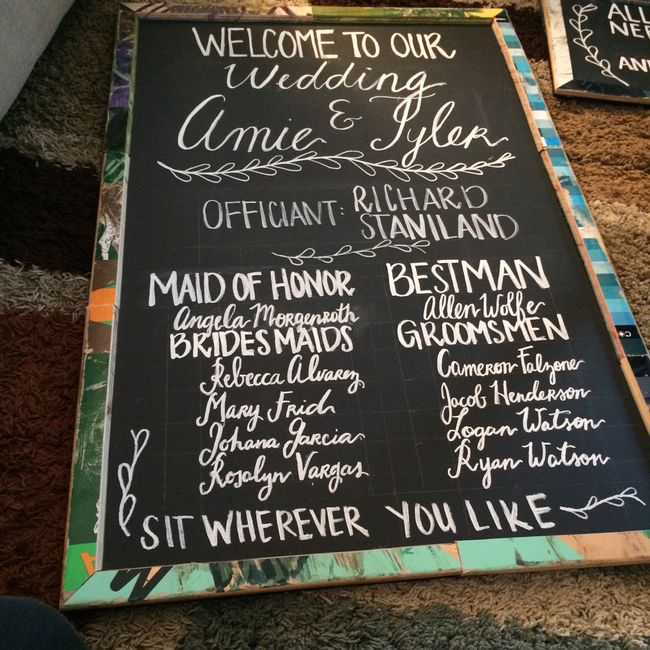 WELCOME TO OUR
Wedding
Amie & Tyler
OFFICIANT: RICHARD
STANILAND
MAID OF HONOR
Angela Morgenroth
BRIDESMAIDS
Rebecca Alvarez
Mary Frich
Johana Garcia
Rosalyn Vargas
BESTMAN
Allen Wolfe
GROOMSMEN
Cameron Falzone
Jacob Henderson
Logan Watson
Ryan Watson
SIT WHEREVER YOU LIKE
ALL